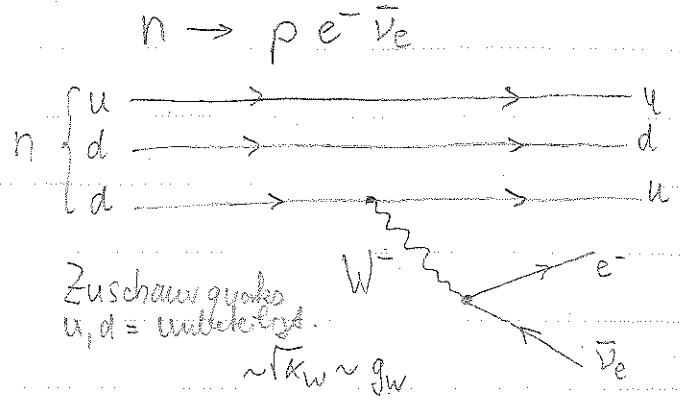 n → p e⁻ ν̄ₑ
u u
n { d d
d u
W⁻ e⁻
Zuschauerquarks
u, d = unbeteiligt.
ν̄ₑ
~√α_W ~ g_W